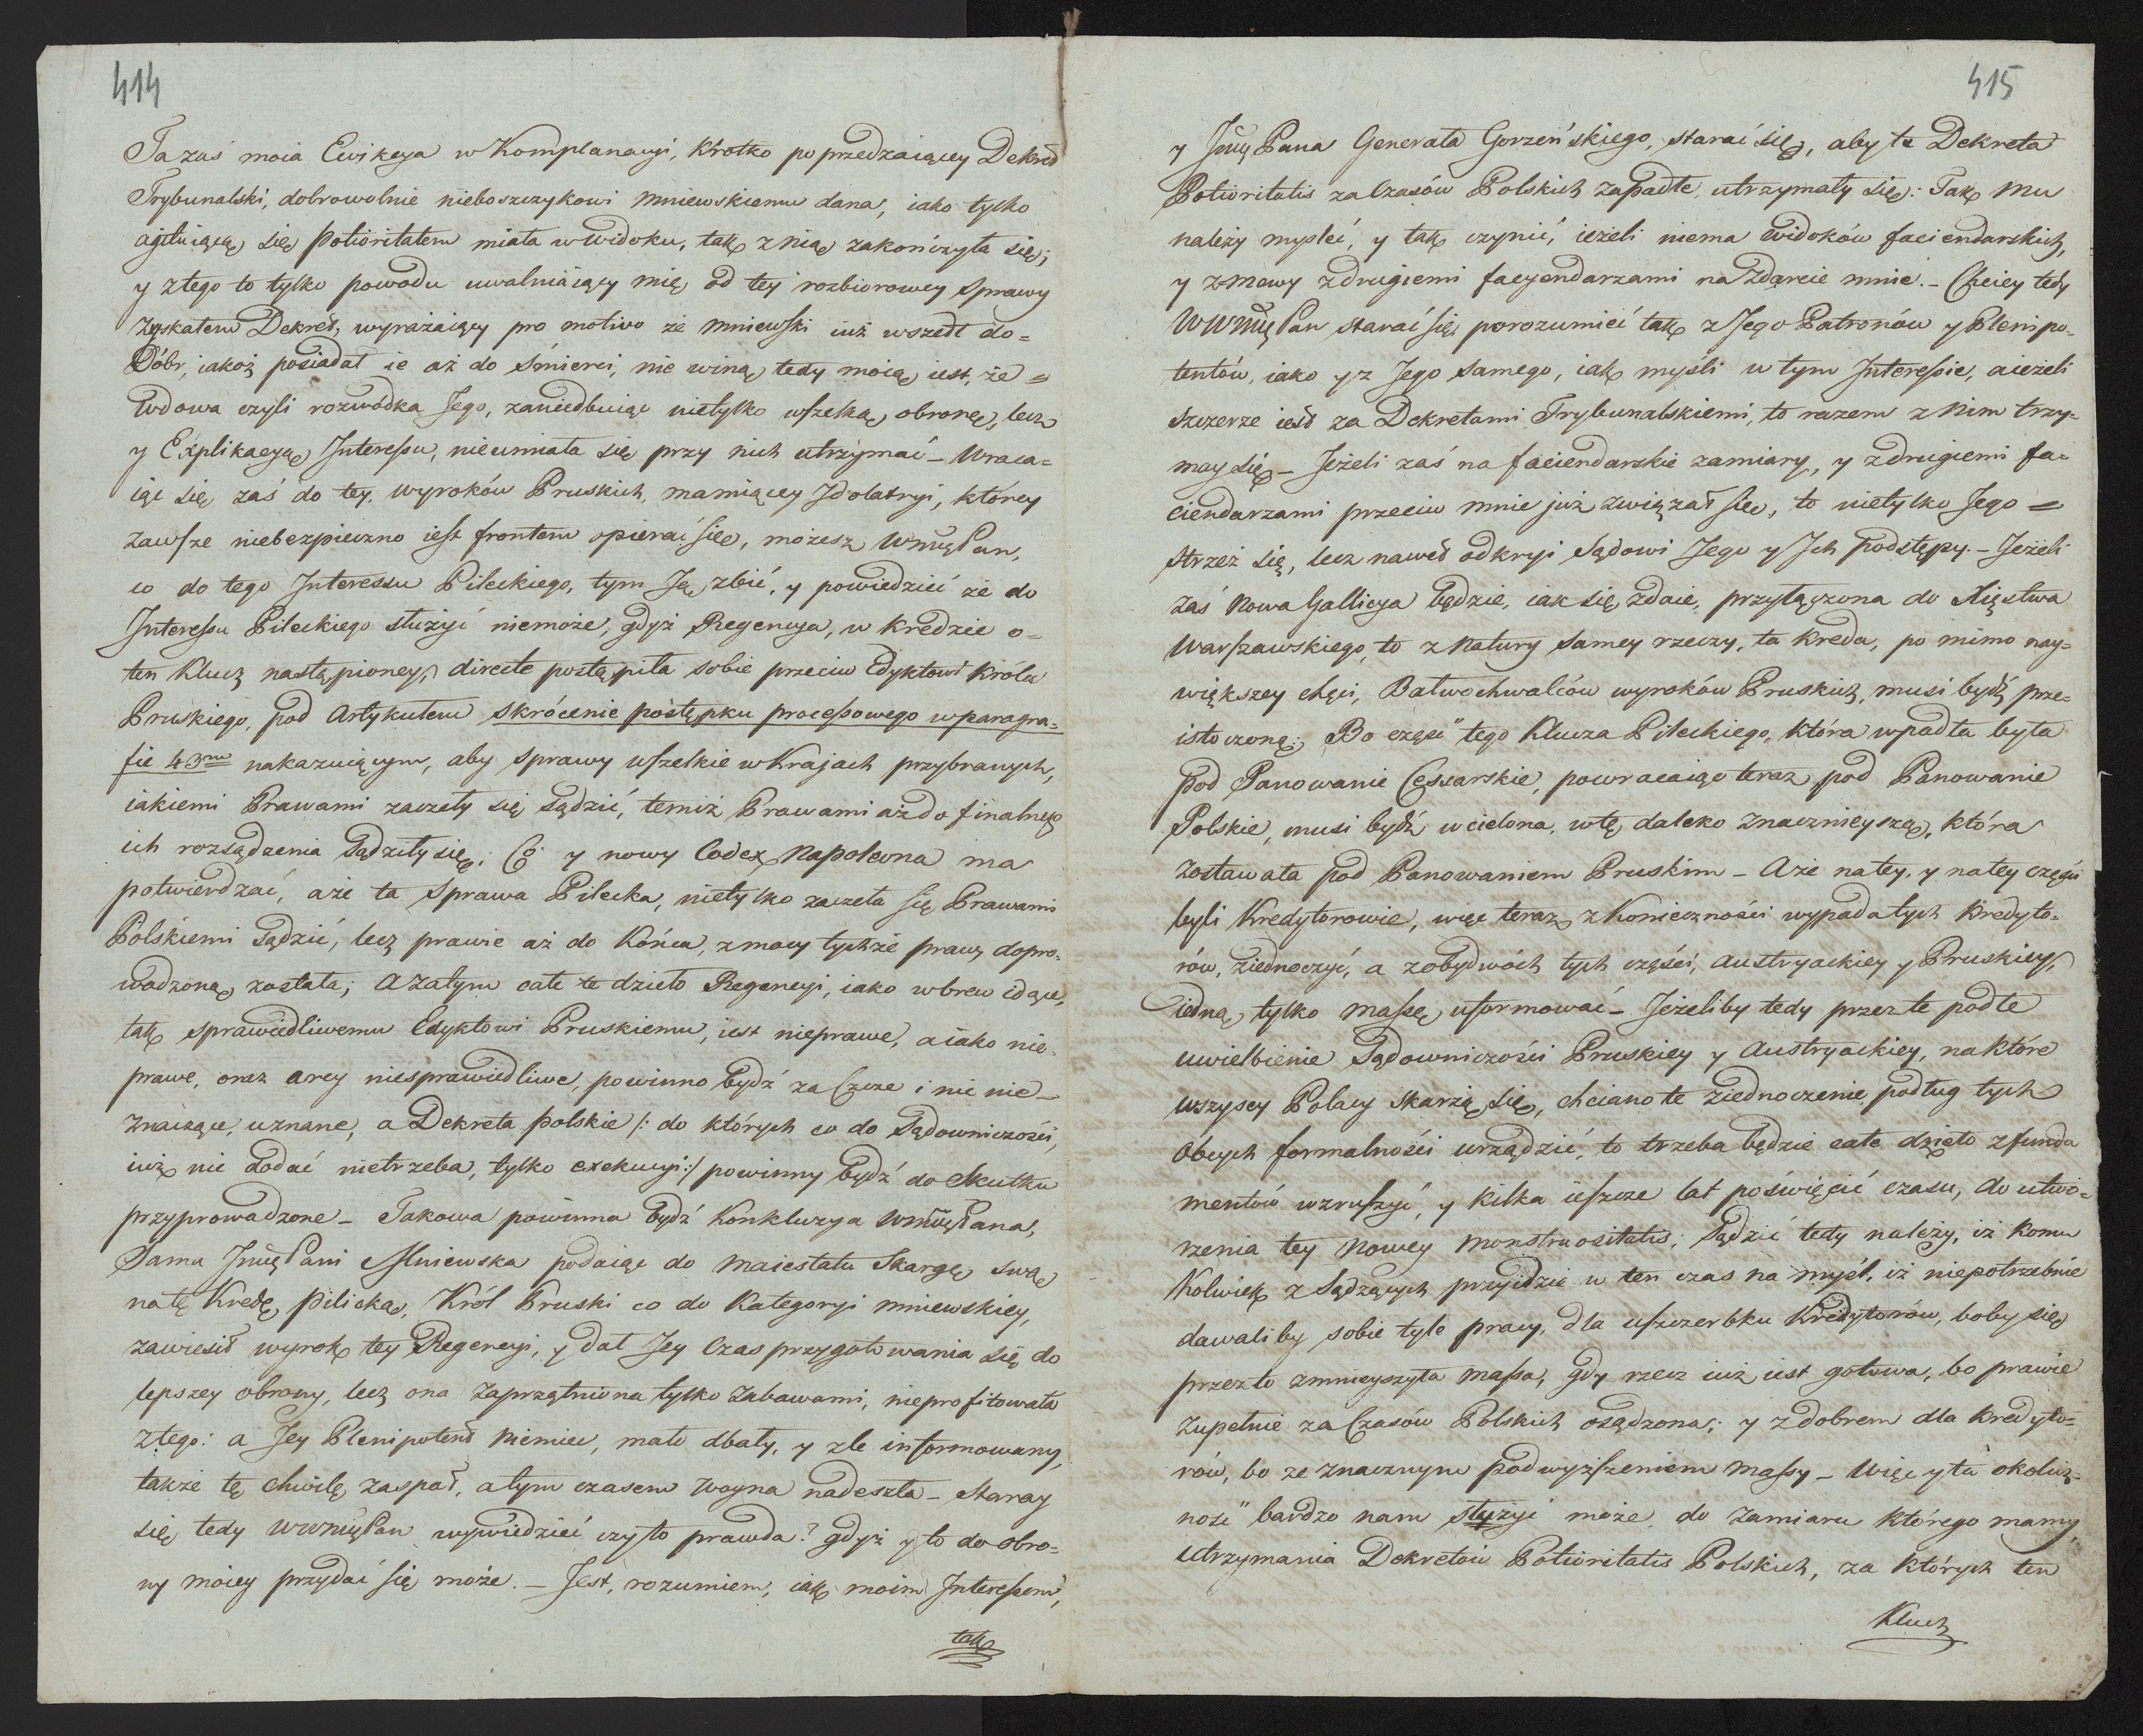 414
Ta zaś moia Ewikcya w Komplanacyi, krotko poprzedzaiącey Dekret
Trybunalski, dobrowolnie nieboszczykowi Mniewskiemu dana, iako tylko
agituiącą się Potioritatem miała w widoku, tak z nią zakończyła się;
y z tego to tylko powodu uwalniaiący mię od tey rozbiorowey Sprawy
zyskałem Dekret, wyrażaiący pro motivo że Mniewski iuż wszedł do=
Dóbr, iakoż posiadał ie aż do śmierci, nie winą tedy moią iest, że=
Wdowa czyli rozwódka Jego, zaniedbuiąc nietylko wszelką obronę, lecz
y Explikacyą Interessu, nieumiała się przy nich utrzymać – Wraca=
iąc się zaś do tey. Wyroków Pruskich, mamiącey Jdolatryi, którey
zawsze niebezpieczno iest frontem opierać się, możesz WMćPan,
co do tego Interessu Pileckiego, tym Ją zbić, y powiedzieć że do
Interessu Pileckiego służyć niemoże, gdyż Regencya, w kredzie o=
ten Klucz nastąpioney, directe postąpiła sobie przeciw Edyktowi Króla
Pruskiego, pod Artykułem skrócenie postępku processowego w paragra=
fie 43m nakazuiącym, aby Sprawy wszelkie w Krajach przybranych,
iakiemi Prawami zaczęły się sądzić, temiż Prawami aż do finalnego
ich rozsądzenia sądziły się; Co y nowy Codex Napoleona ma
potwierdzać, aże ta Sprawa Pilecka, nietylko zaczeła się Prawami
Polskiemi sądzić, lecz prawie aż do Końca, z mocy tychże praw dopro=
wadzoną została; a zatym całe te dzieło Regencyi, iako wbrew idące,
tak sprawiedliwemu Edyktowi Pruskiemu, iest nieprawe, a iako nie=
prawe, oraz arcy niesprawiedliwe, powinno bydź za Czcze i nic nie–
znaczące, uznane, a Dekreta Polskie /: do których co do Sądowniczości,
iuż nic dodać nietrzeba, tylko exekucyi:/ powinny bydź do skutku
przyprowadzone – Takowa powinna bydź Konkluzya WMćPana,
Sama JmćPani Mniewska podaiąc do Maiestatu Skargę swą
na tę Kredę Pilicką, Król Pruski co do Kategoryi Mniewskiey,
zawiesił wyrok tey Regencyi, y dał Jey Czas przygotowania się do
lepszey obrony, lecz ona zaprzątniona tylko zabawami, nieprofitowała
z tego: a Jey Plenipotent Niemiec, mało dbały, y źle informowany,
także tę chwilę zaspał, a tym czasem Woyna nadeszła – Staray
się tedy WWMćPan wywiedzieć czy to prawda? gdyż y to do obro=
ny moiey przydać się może. – Jest, rozumiem, iak moim Interessem,
tak
415
y Jmć Pana Generała Gorzeńskiego, starać się, aby te Dekreta
Potioritatis za Czasów Polskich zapadłe, utrzymały się: Tak Mu
należy mysleć, y tak czynić, ieżeli niema Widoków faciendarskich,
y zmowy z drugiemi facyendarzami na zdarcie mnie. – Chciey tedy
WWMćPan starać się porozumieć tak z Jego Patronów y Plenipo=
tentów, iako y z Jego samego, iak myśli w tym Interessie, a ieżeli
szczerze iest za Dekretami Trybunalskiemi, to razem z Nim trzy=
may się – Jeżeli zaś na faciendarskie zamiary, y z drugiemi fa=
ciendarzami przeciw mnie już związał się, to nietylko Jego =
strzeż się, lecz nawet odkryi Sądowi Jego y Jch podstępy. – Jeżeli
zaś Nowa Gallicya będzie, iak się zdaie, przyłączona do Xięstwa
Warszawskiego, to z Natury samey rzeczy, ta kreda, po mimo nay=
większey chęci, Bałwochwalców wyroków Pruskich, musi bydź prze=
istoczoną; Bo część tego Klucza Pileckiego, która wpadła była
pod Panowanie Cessarskie, powracaiąc teraz pod Panowanie
Polskie, musi bydź wcielona, w tę daleko znacznieyszą, która
zostawała pod Panowaniem Pruskim – Aże na tey. y na tey części
byli Kredytorowie, więc teraz z Konieczności wypada tych Kredyto=
rów, ziednoczyć, a z obydwóch tych części, Austryackiey y Pruskiey,
iedną tylko massę uformować – Jeżeliby tedy przez te podłe
uwielbienie Sądowniczości Pruskiey y Austryackiey, na które
wszyscy Polacy skarżą się, chciano te ziednoczenie, podług tych
Obcych formalności urządzić, to trzeba będzie całe dzieło z funda
mentów wzruszyć, y kilka ieszcze lat poświęcić czasu, do utwo=
rzenia tey Nowey Monstruositatis; Sądzić tedy należy, iż komu
Kolwiek z Sądzących przyidzie w ten czas na myśl, iż niepotrzebnie
dawaliby sobie tyle pracy, dla uszczerbku Kredytorów, boby się
przez to zmnieyszyła Massa, gdy rzecz iuż iest gotowa, bo prawie
zupełnie za Czasów Polskich osądzona; y z dobrem dla Kredyto=
rów, bo ze znacznym podwyższeniem Massy – Więc y ta okolicz=
ność bardzo nam służyć może, do zamiaru którego mamy
utrzymania Dekretów Potioritatis Polskich, za których ten
Klucz